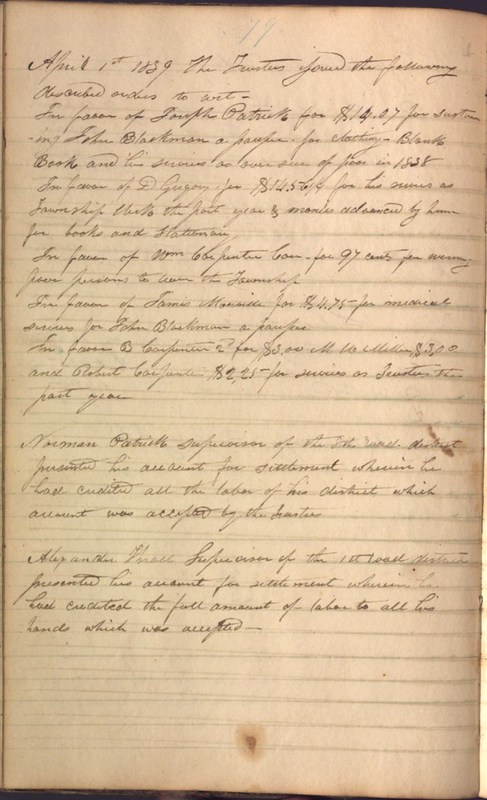 79
April 1st 1839 The Trustees issued the following
described orders to wit -
In favor of Joseph Patrick for $14.07 for sustain
-ing John Blackman a pauper for clothing - Blank
Book and his services as over seer of poor in 1838
In favor of D Gregory for $14.56¼ for his services as
Township Clerk the past year & monies advanced by him
for books and Stationary
In favor of Wm Carpenter Con. for 97 cents for warning
poor persons to leave the Township
In favor of James for $4.75 for medical
services for John Blackman a pauper
In favor B Carpenter 2d for $3,00 M McMillen $3,00
and Robert Carpenter $2,25 for services as Trustees the
past year
Norman Patrick supervisor of the road district
presented his account for settlement wherein he
had credited all the labor of his district which
account was accepted by the Trustees
Alexander Thrall Supervisor of the 1st road district
presented his account for settlement wherein he
had credited the full amount of labor to all his
hands which was accepted -